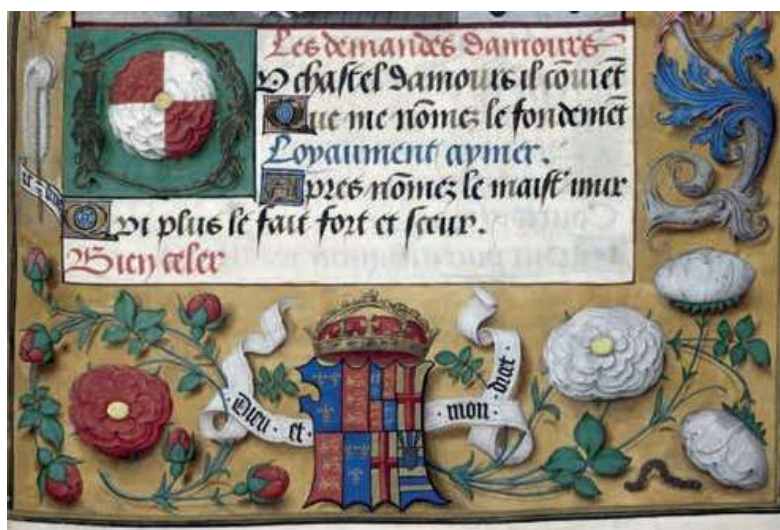 Les demandes damours
O chastel damours il cōuiēt
Que me nōmez le fondemēt
Loyaument aymer.
Apres nōmez le maist' mur
Qui plus le fait fort et sceur.
Bien celer
Dieu · et · mon · droit ·